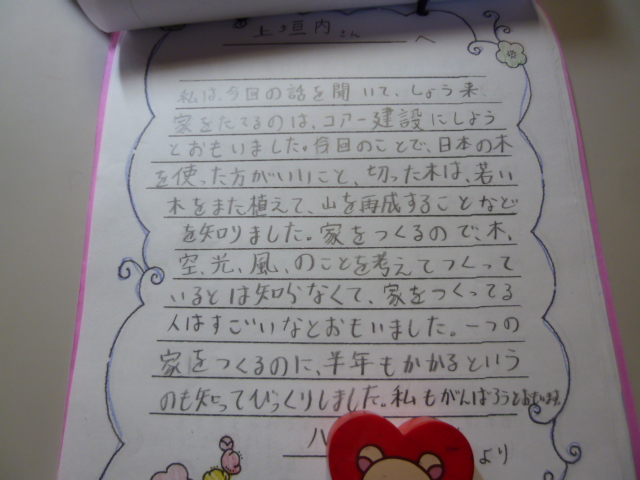 上垣内さんへ
私は、今回の話を聞いて、しょう来、
家をたてるのは、コアー建設にしよう
とおもいました。今回のことで、日本の木
を使った方がいいこと、切った木は、若い
木をまた植えて、山を再成することなど
を知りました。家をつくるので、木、
空、光、風、のことを考えてつくって
いるとは知らなくて、家をつくってる
人はすごいなとおもいました。一つの
家をつくるのに、半年もかかるという
のも知ってびっくりしました。私もがんばろうとおもいます。
八
より